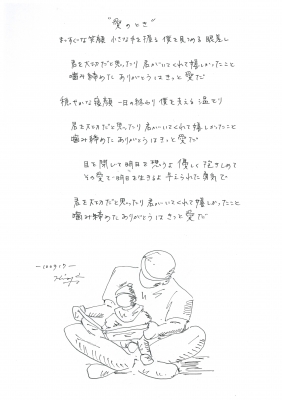 "愛のとき"
まっすぐな笑顔 小さな手を振る 僕を見つめる 眼差し
君を大切だと思ったり 君がいてくれて嬉しかったこと
噛み締めた ありがとうは きっと 愛だ
穏やかな寝顔 一日の終わり 僕を支える 温もり
君を大切だと思ったり 君がいてくれて嬉しかったこと
噛み締めた ありがとうは きっと 愛だ
目を閉じて 明日を想うよ 優しく 抱きしめて
その愛で 明日を生きるよ 与えられた 勇気で
君を大切だと思ったり 君がいてくれて嬉しかったこと
噛み締めた ありがとうは きっと 愛だ